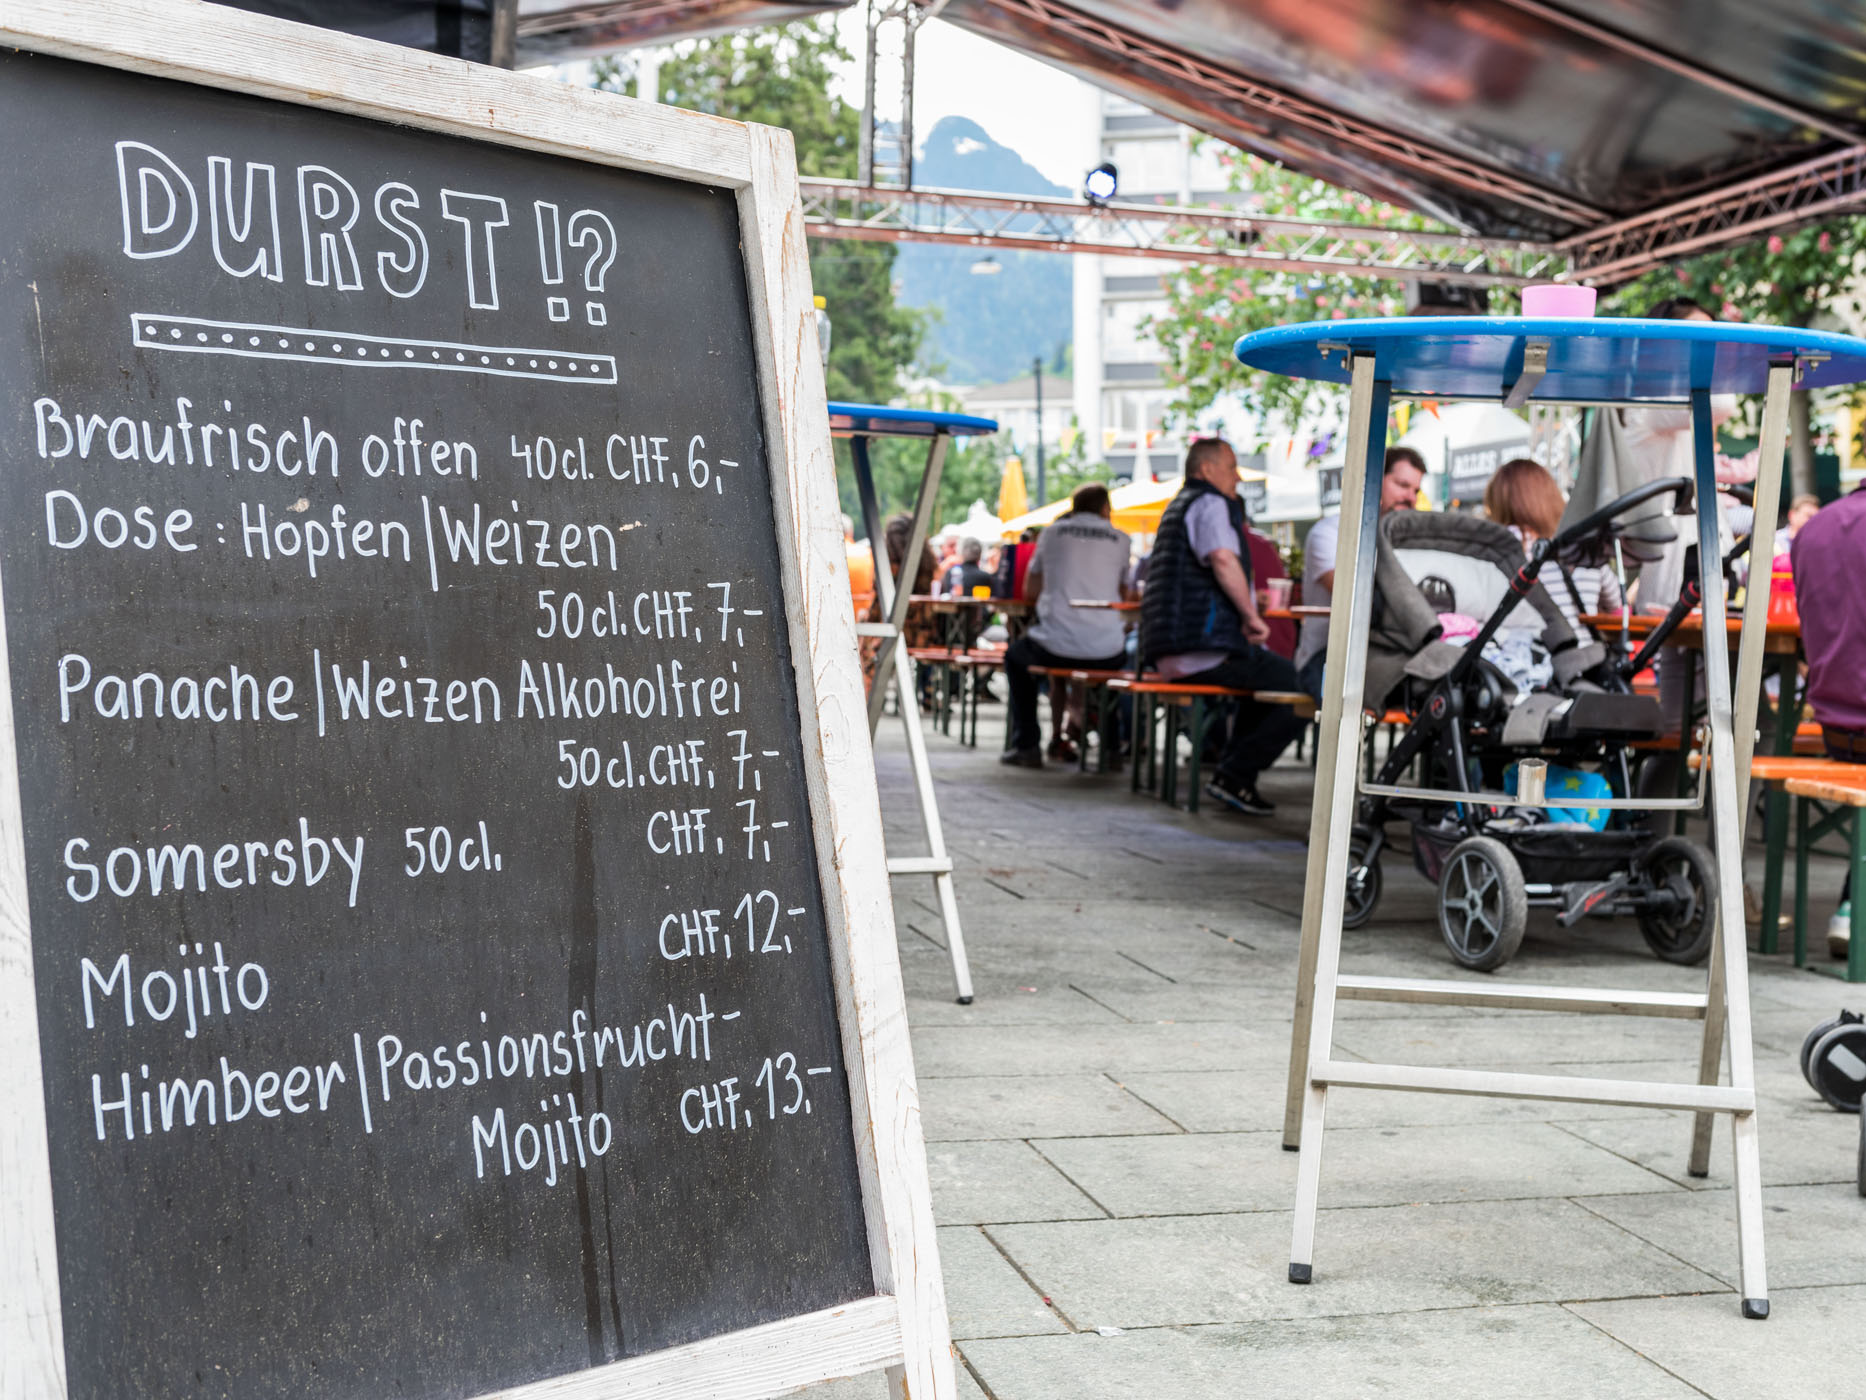 DURST!?
Braufrisch offen 40cl. CHF. 6,-
Dose : Hopfen|Weizen
50cl. CHF. 7,-
Panache|Weizen Alkoholfrei
50cl. CHF. 7,-
Somersby 50cl. CHF. 7,-
Mojito CHF. 12,-
Himbeer|Passionsfrucht-
Mojito CHF. 13,-